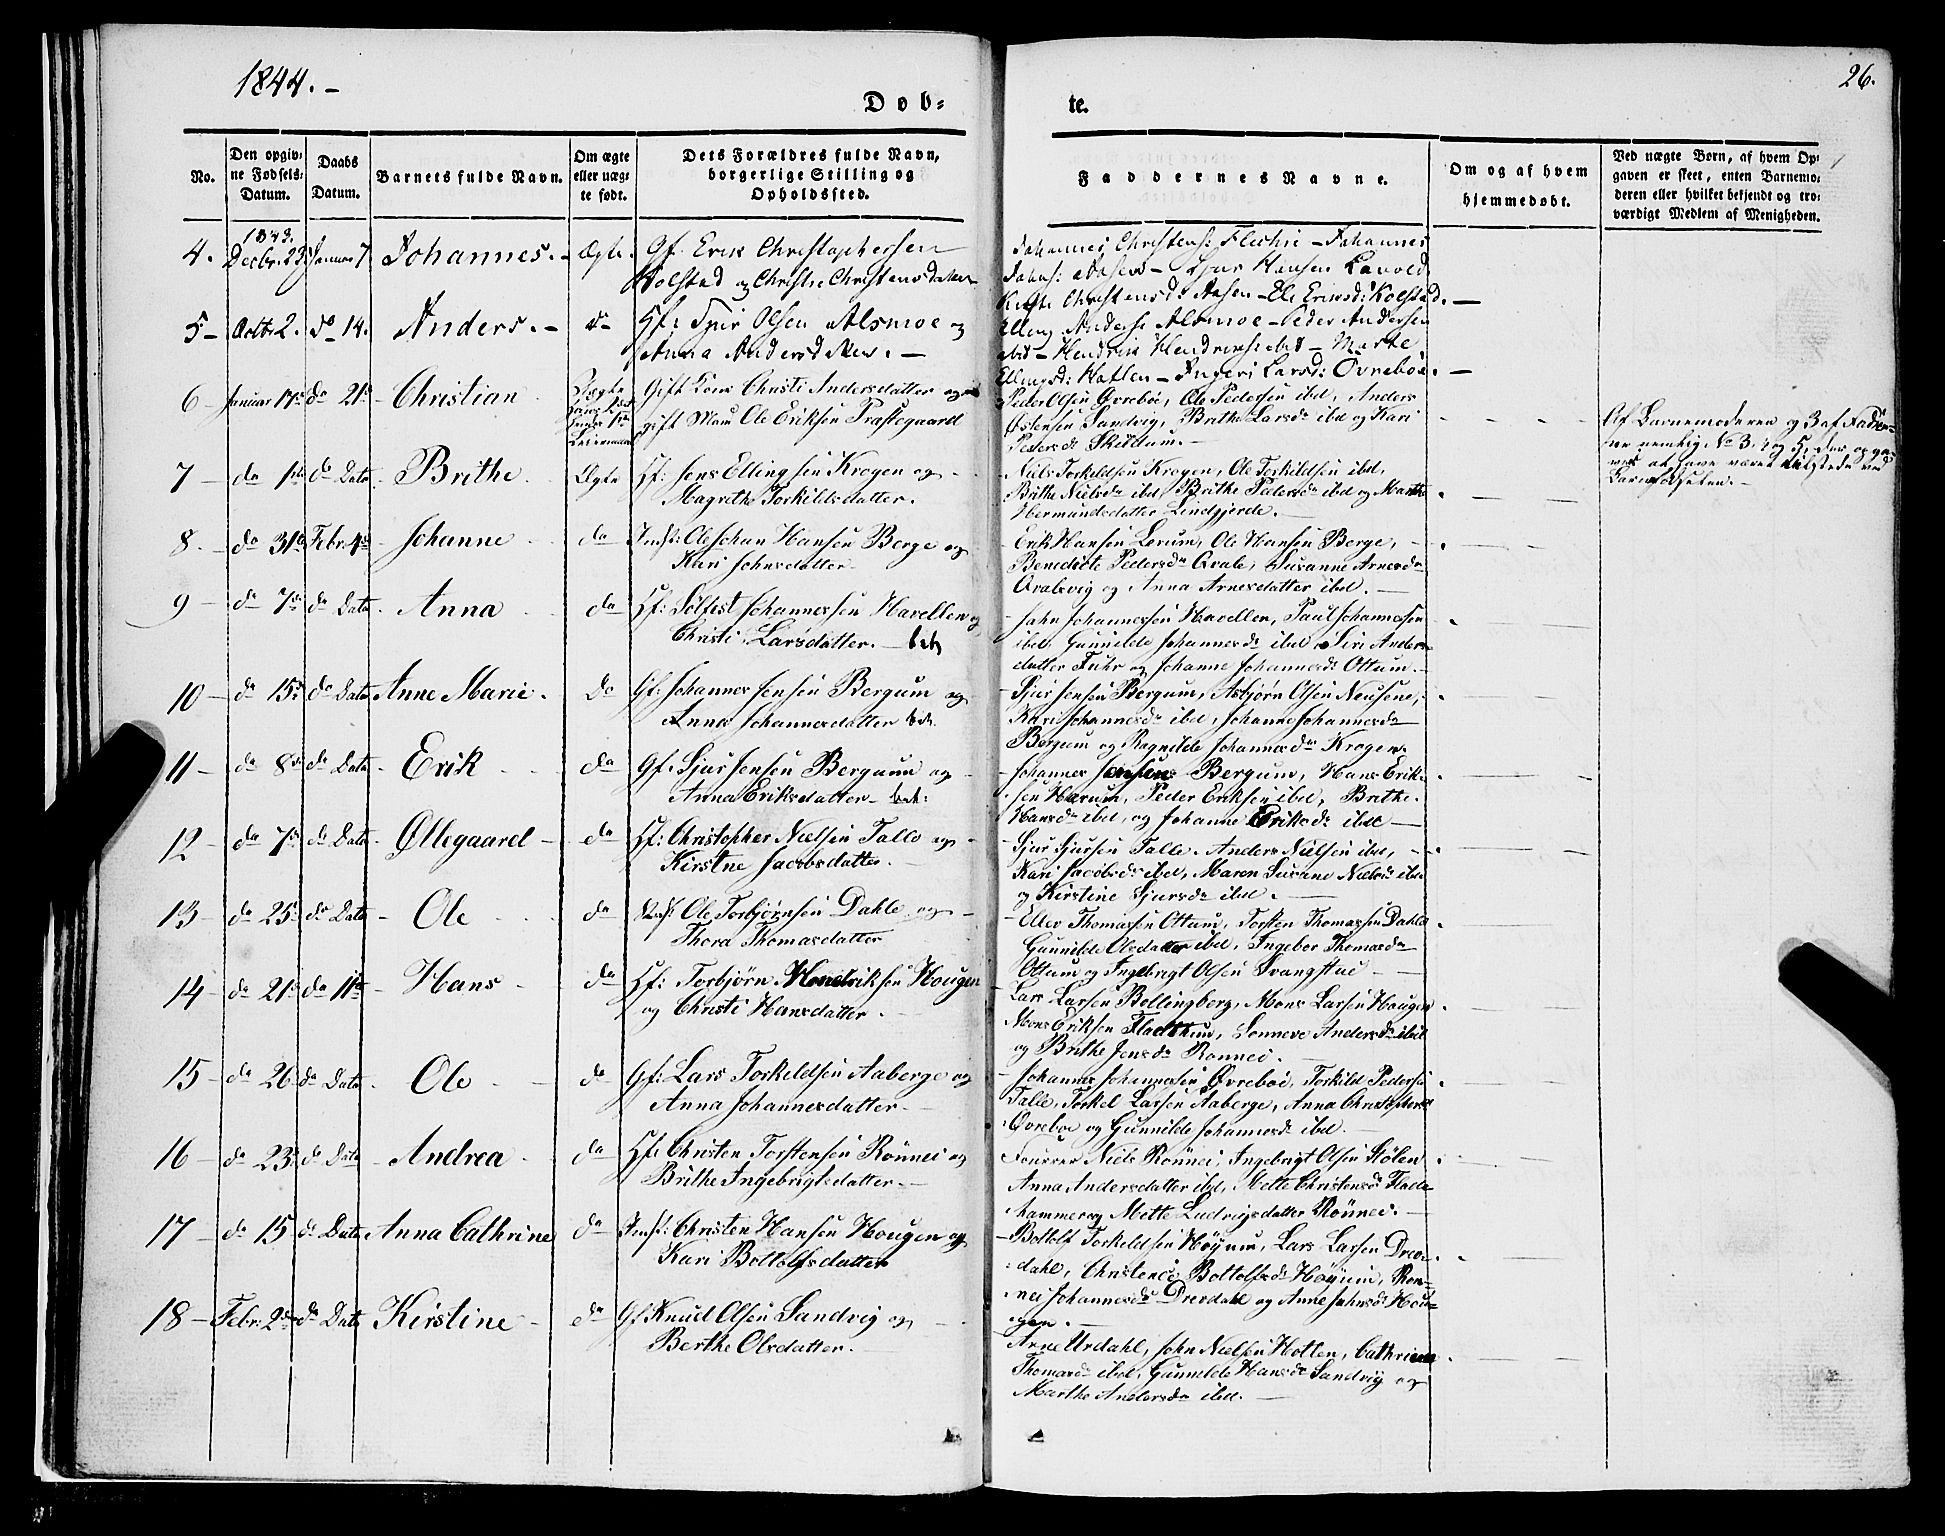 1844.-
26.
Døb-
te.
No.
Den opgiv-
ne Fødsels-
Datum.
Daabs
Datum.
Barnets fulde Navn.
Om ægte
eller uæg-
te født.
Dets Forældres fulde Navn,
borgerlige Stilling og
Opholdssted.
Faddernes Navne.
Om og af hvem
hjemmedøbt.
Ved uægte Børn, af hvem Op-
gaven er skeet, enten Barnemo-
deren eller hvilket bekjendt og tro-
værdigt Medlem af Menigheden.
1843.
4. Decbr. 23 Januar 7 Johannes. Ægte. Gf. Erik Christophersen
Kolstad og Christi Christensdatter
Johannes Christens: Flechie - Johannes
Johns: Aasen - Sjur Hansen Lavold
Christensd: Aasen - Ele Eriksd: Kolstad.
5 Octbr 2. do 14. Anders. do Hf: Olsen Alsmoe og
Anna Andersdatter.
Elling Anders: Alsmoe - Peder Andersen
ibid - Hendrik Hendriks: ibid - Marte
Ellingsd: Hatlen - Ingeri Larsd: Øvreboe.
6 Januar 17de do 21de Christian Uægte
Gift Kone Christi Andersdatter og
gift Mand Ole Eriksen Præstegaard
Peder Olsen Øvreboe, Ole Pedersen ibd, Anders
Sandvig, Brithe Larsdr ibd og Kari
Pedersdr Skildum.
Af Barnemoderen og 3 af Fadder-
ne nemlig No 3, og 5, der opga-
ves at have været tilstede ved
Barnefødselen.
7 do 1de do Dato Brithe Ægte Hf: Jens Ellingsen Krogen og
Magrethe Torkildsdatter.
Niels Torkildsen Krogen, Ole Torkildsen ibd,
Brithe Nielsdr ibd, Brithe Pedersdr ibd og Marthe
Hermundsdatter Lindfjerde.
8. do 31te Febr. 4de Johanne do Indst: Ole Johan Hansen Berge og
Kari Johnsdatter
Erik Hansen Lerum, Ole Hansen Berge,
Benedicte Pedersdr Qvale, Susanne Arnesdr
Qvalevig og Anna Arnesdatter ibd.
9 do 7de do Dato Anna do Hf: Sølfest Johannessen Havellen og
Christi Larsdatter.
John Johannessen Havellen, Paul Johannessen
ibd, Gunnilde Johannesdr ibd, Siri Anders-
datter Fuhr og Johanne Johannesdr Ottum.
10 do 15de do Dato Anne Marie. do Gf: Johannes Jensen Bergum og
Anna Johannesdatter
Sjur Jensen Bergum, Asbjørn Olsen Neusene,
Kari Johannesdr ibd, Johanne Johannesdr
Bergum og Ragnilde Johannesdr Krogen.
11 do 8de do Dato Erik do Gf: Sjur Jensen Bergum og
Anna Eriksdatter
Johannes Jensen Bergum, Hans Erik-
sen Harum, Peder Eriksen ibd, Brithe
Hansdr ibd, og Johanne Eriksdr ibd
12 do 7de do Dato Øllegaard do Hf: Christopher Nielsen Talle og
Kirstne Jacobsdatter
Sjur Sjursen Talle, Anders Nielsen ibd,
Kari Jacobsdr ibd, Maren Susane Nielsdr ibd
og Kirstine Sjursdr ibd.
13 do 25de do Dato Ole do Ole Torbjørnsen Dahle og
Thora Thomasdatter
Eller Thomassen Ottum, Torsten Thomassen Dahle
Gunnilde Olsdatter ibd, Ingebor Thomasdr
Ottum og Ingebrigt Olsen Svangstue
14 do 21de do 11te Hans do Hf: Torbjørn Hendriksen Hougen
og Christi Hansdatter.
Lars Larsen Bollingberg, Mons Larsen Hougen
Mons Eriksen Fladhum, Sonneve Andersdr ibd
og Brithe Jensdr Ronnei.
15 do 26 do Dato Ole do Gf: Lars Torkildsen Aaberge og
Anna Johannesdatter
Johannes Johannessen Øvreboe, Torkild Pedersen
Talle, Torkel Larsen Aaberge, Anna Christophersdr
Øvreboe og Gunnilde Johannesdr ibd.
16 do 23de do Dato Andrea do Hf: Christen Torstensen Rønnei og
Brithe Ingebrigtsdatter
Fourrer Niels Rønnei, Ingebrigt Olsen Kølen
Anna Andersdatter ibd, Mette Christensdr Flade-
hammer og Mette Ludvigsdatter Rønnei.
17 do 15 do Dato Anna Cathrine do Indst: Christen Hansen Hougen og
Kari Bottolfsdatter
Bottolf Torkildsen Høyum, Lars Larsen Drev-
dahl, Christence Bottolfsdr Høyum, Ron-
nei Johannesdr Drevdahl og Anne Johnsdr Hou-
gen.
18 Febr. 2den do Dato Kirstine do Gf: Knud Olsen Sandvig og
Berthe Olsdatter.
Arne Urdahl, John Nielsen Hotten, Cathrine
Thomasdr ibd, Gunnilde Hansdr Sandvig og
Marthe Andersdr ibd.